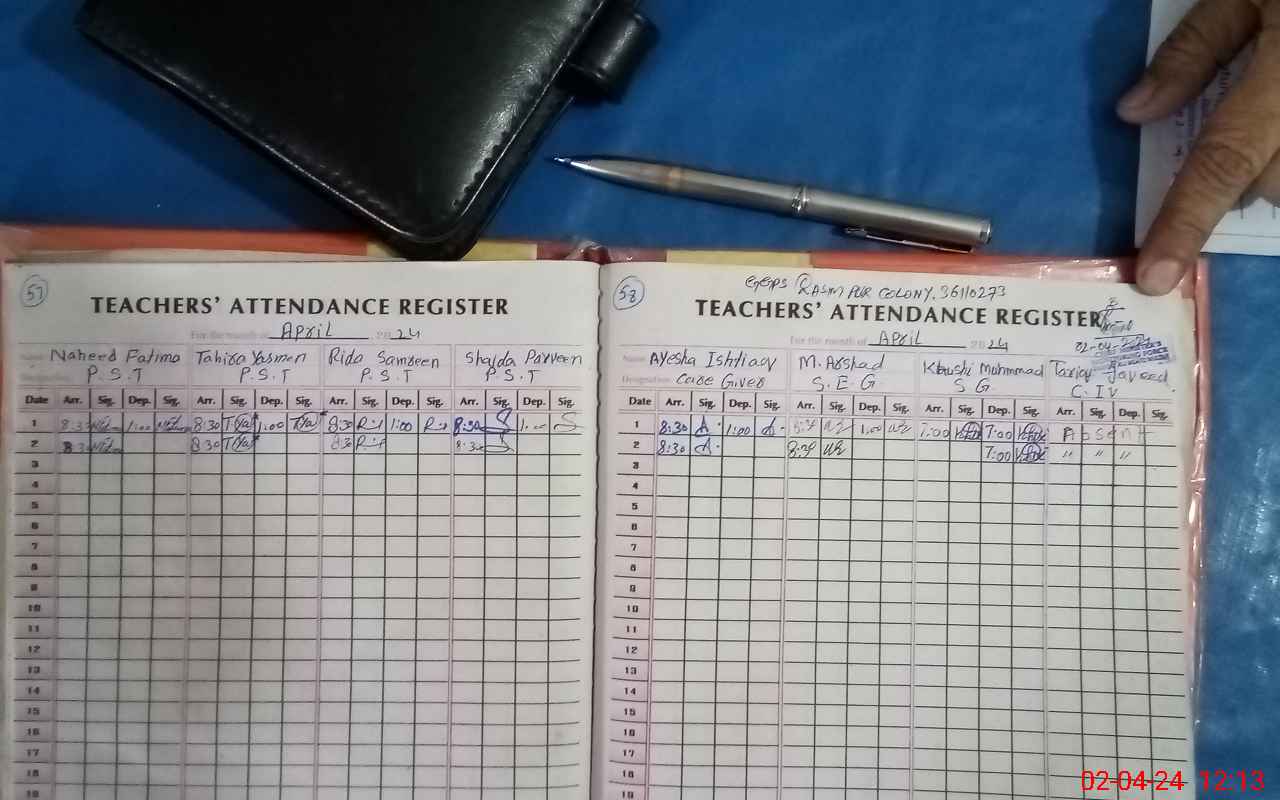 57
TEACHERS' ATTENDANCE REGISTER
For the month of April 2024
Name Naheed Fatima Tahira Yasmen Rida Samreen Shaida Parveen
Designation P.S.T P.S.T P.S.T P.S.T
Date Arr. Sig. Dep. Sig. Arr. Sig. Dep. Sig. Arr. Sig. Dep. Sig. Arr. Sig. Dep. Sig.
1 8:30 1:00 8:30 1:00 8:30 1:00 8:30 1:00
2 8:30 8:30 8:30 8:30
3
4
5
6
7
8
9
10
11
12
13
14
15
16
17
18
19
58
GGPS QASIM PUR COLONY. 36110273
TEACHERS' ATTENDANCE REGISTER
For the month of April 2024
02-04-24
Name Ayesha Ishtiaq M. Arshad Khushi Mohmmad Tariq Javeed
Designation Care Giver S.E.G. S G. C.IV
Date Arr. Sig. Dep. Sig. Arr. Sig. Dep. Sig. Arr. Sig. Dep. Sig. Arr. Sig. Dep. Sig.
1 8:30 1:00 8:30 1:00 7:00 7:00 Absent
2 8:30 8:30 7:00 " " "
3
4
5
6
7
8
9
10
11
12
13
14
15
16
17
18
19
02-04-24 12:13